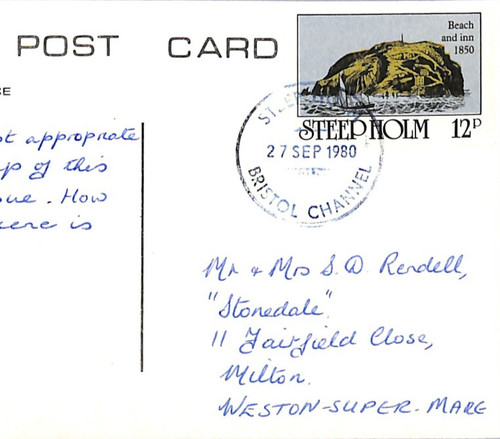 POST CARD
Beach
and inn
1850
STEEP HOLM 12P
STEEP HOLM
27 SEP 1980
BRISTOL CHANNEL
CE
appropriate
of this
How
is
Mr + Mrs S. D. Rendell,
"Stonedale".
11 Fairfield Close,
Milton.
WESTON-SUPER-MARE